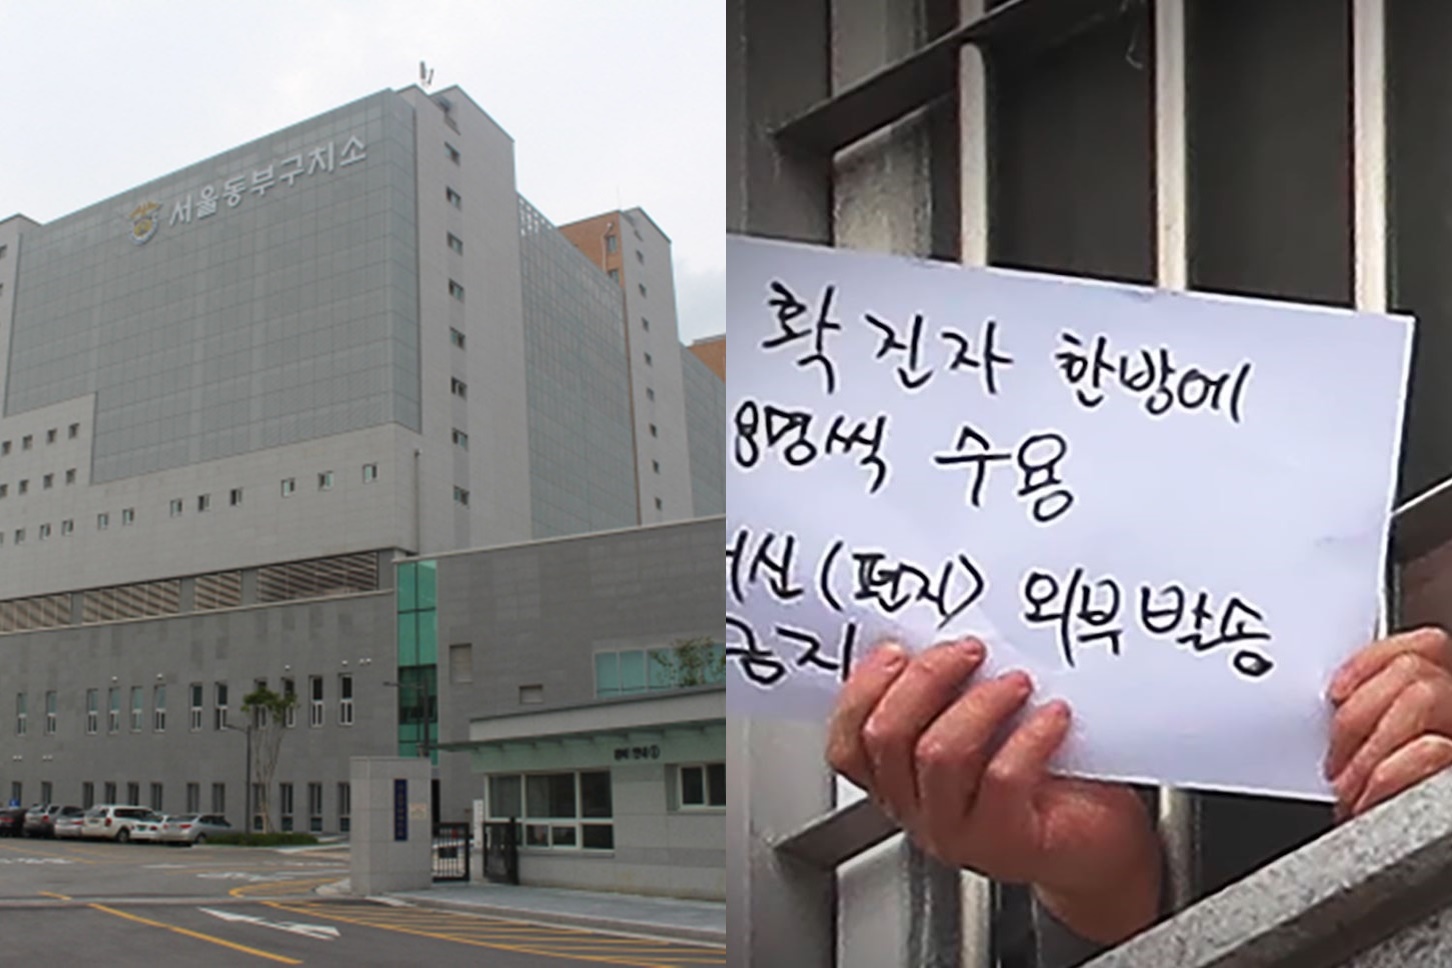 서울동부구치소
확진자 한방에
8명씩 수용
서신(편지) 외부발송
금지